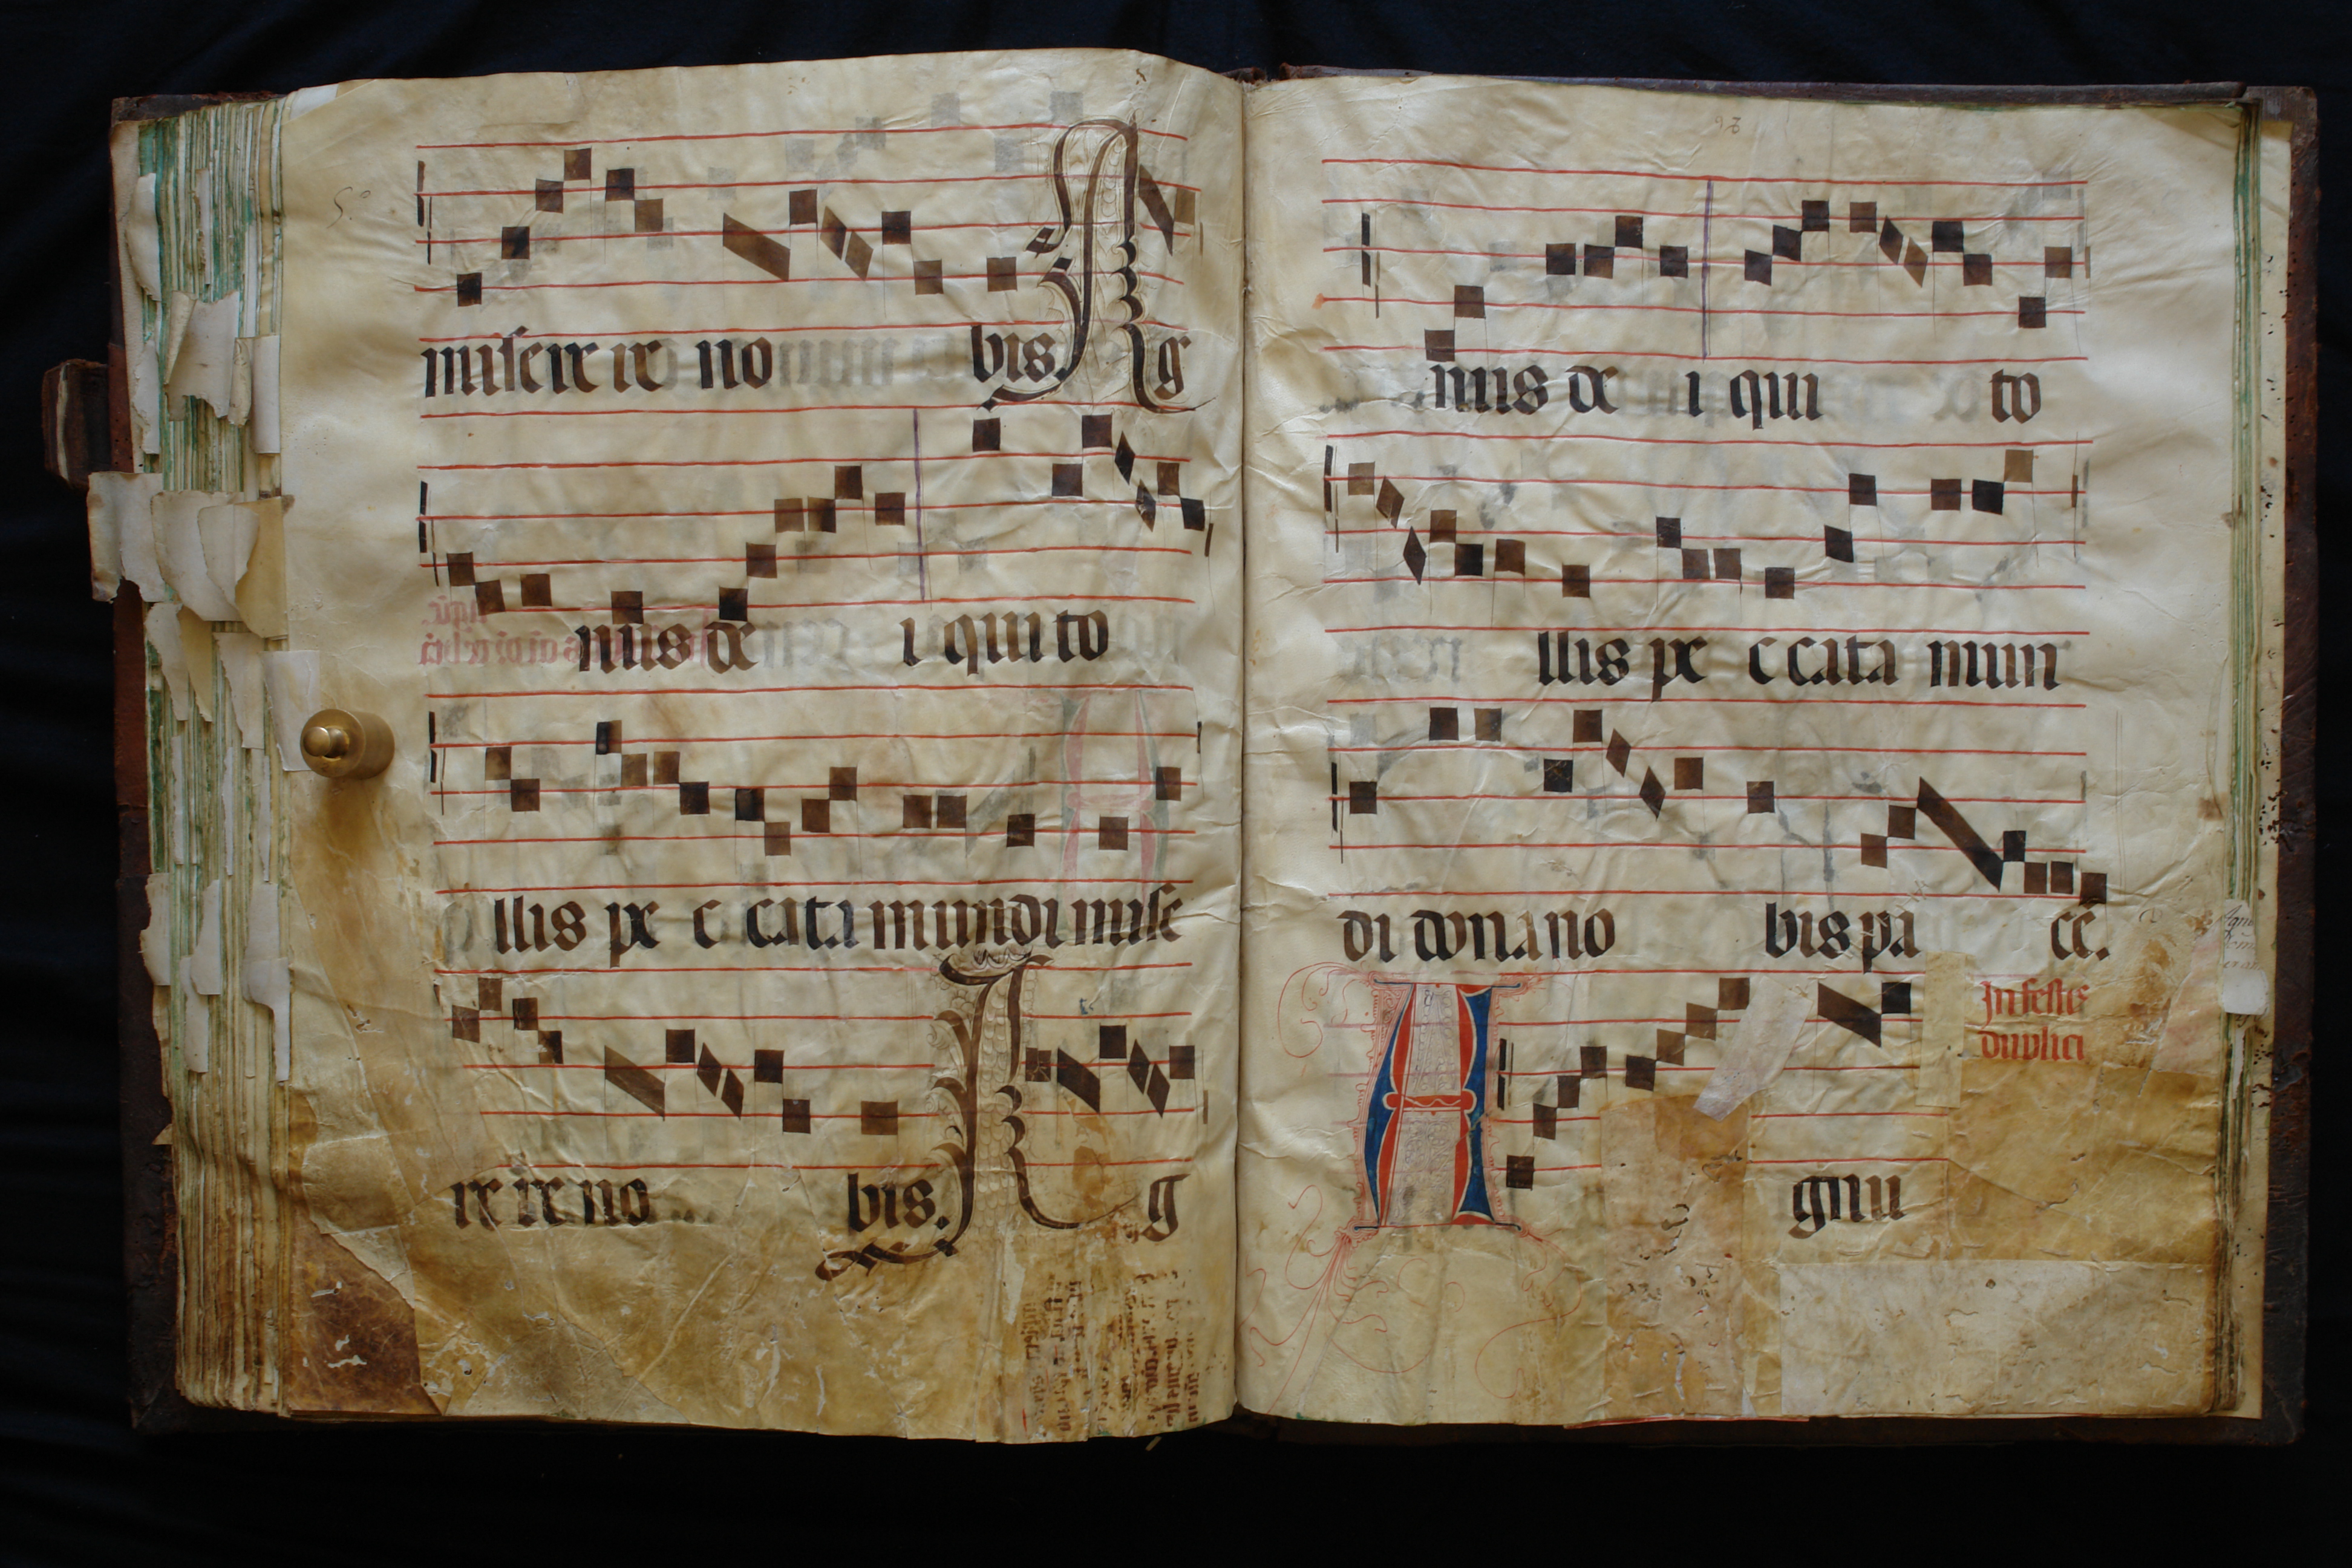 miserere no bis. Ag
nus de i qui to
llis pe c cata mundi mise
re re no bis. Ag
93
nus de i qui to
llis pe c cata mun
di dona no bis pa ce.
In festis
duplici
A gnu